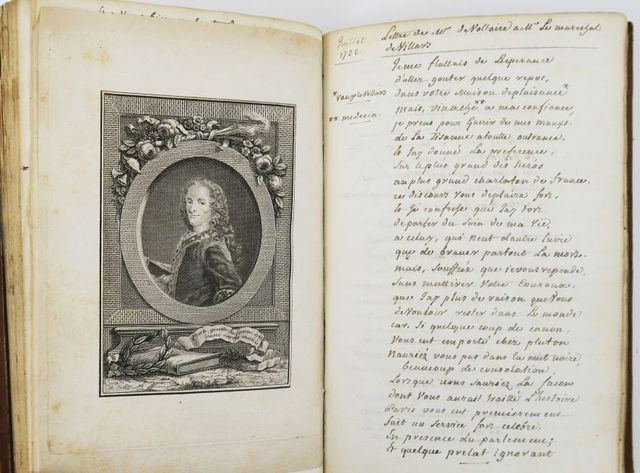 Lettre de Mr de Voltaire a Mr Le marechal
de Villars
Juillet
1722.
Je me flattais de Lesperance
d'aller gouter quelque repos,
* Vaux le Villars
dans votre maison de plaisance *
** medecin
mais, vinache ** a ma confiance
je prens pour Guerir de mes maux
de La Tisanne a toutte outrance,
et Jay donné La preference,
Sur le plus grand des heros
au plus grand charlatan de france.
ce discours vous deplaira fort,
et Je confesse que Jay tort
de parler du Soin de ma vie,
a celuy, qui n'eut d'autre Envie
que de braver partout La mort.
mais, Souffréz que je vous reponde
Sans m'attirer votre Couroux,
que Jay plus de raison que Vous
de vouloir rester dans Le monde
car Si quelque coup de canon,
Vous eut emporté chez pluton
N'auriéz vous pas dans la nuit noire
beaucoup de consolation
Lorsque vous Sauriéz La façon
dont Vous aurait traitté L'histoire
Paris vous eut premierement
fait un Service fort celebre
En presence du parlement;
et quelque prelat ignorant